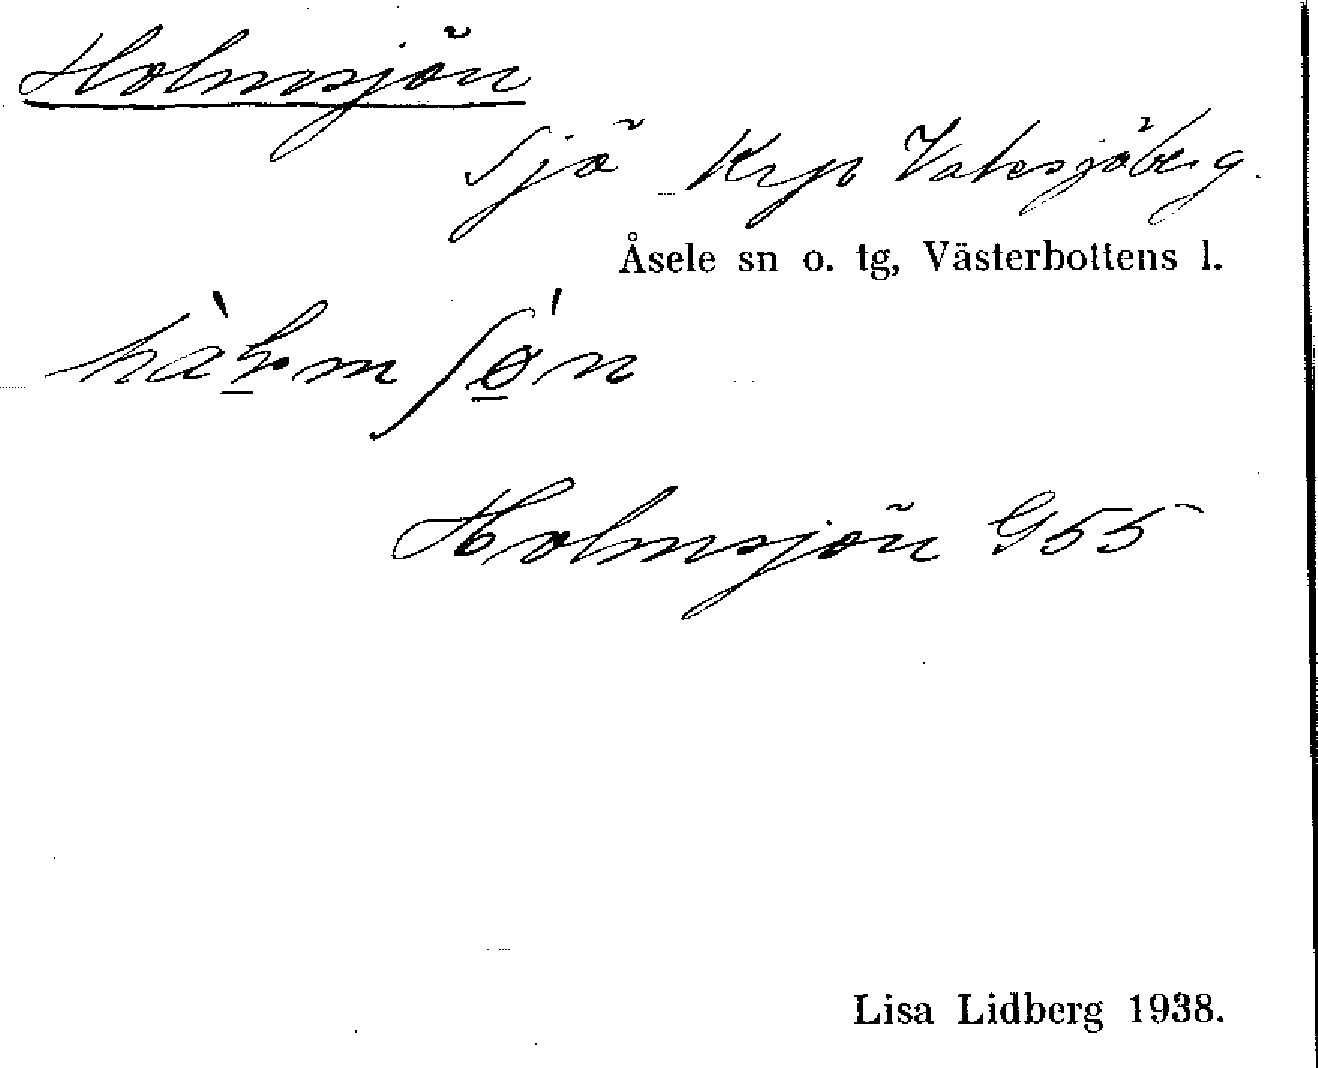 Holmsjön
Sjö Krp Vaksjöberg.
Åsele sn o. tg, Västerbottens l.
Holmsjön G55
Lisa Lidberg 1938.